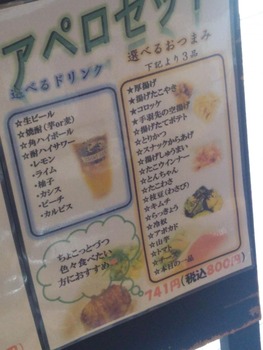 アペロセット
選べるドリンク
☆生ビール
☆焼酎(芋or麦)
☆角ハイボール
☆酎ハイサワー
・レモン
・ライム
・柚子
・カシス
・ピーチ
・カルピス
ちょこっとずつ
色々食べたい
方におすすめ
選べるおつまみ
下記より3品
☆厚揚げ
☆揚げたこやき
☆コロッケ
☆手羽先の空揚げ
☆揚げたてポテト
☆とりかつ
☆スナックからあげ
☆揚げしゅうまい
☆たこウインナー
☆とんちゃん
☆たこわさ
☆枝豆(わさび)
☆キムチ
☆らっきょう
☆冷奴
☆アボカド
☆山芋
☆トマト
☆本日の一品
741円(税込800円)